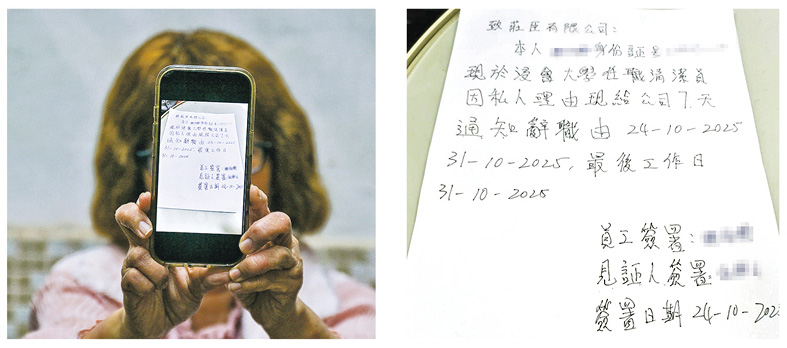 致莊臣有限公司:
本人 身份証号
現於浸會大學任職清潔員
因私人理由現給公司7天
通知辭職由 24-10-2025
31-10-2025, 最後工作日
31-10-2025
員工簽署:
見証人簽署:
簽署日期 24-10-202